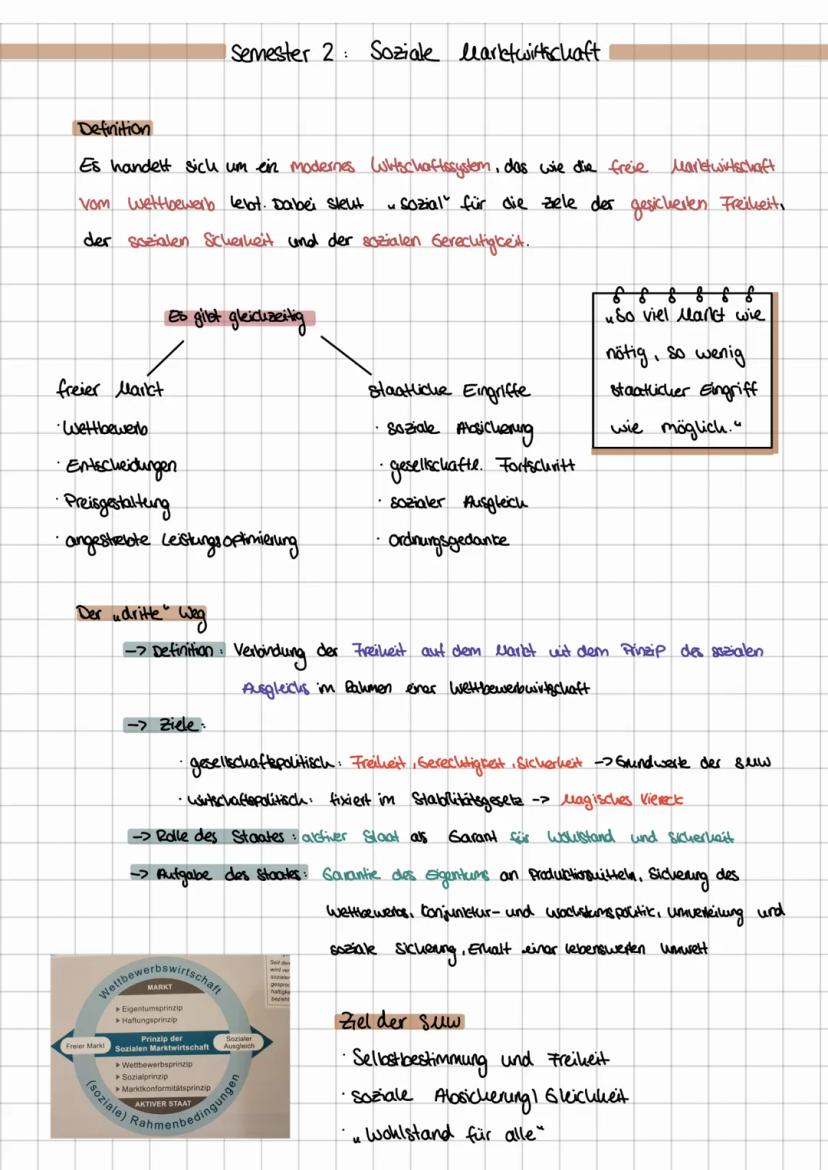 Semester 2: Soziale Marktwirtschaft
Definition
Es handelt sich um ein modernes Wirtschaftssystem, das wie die freie Marktwirtschaft
vom Wettbewerb lebt. Dabei steht „sozial“ für die Ziele der gesicherten Freiheit,
der sozialen Sicherheit und der sozialen Gerechtigkeit.
Es gibt gleichzeitig
„So viel Markt wie
nötig, so wenig
staatlicher Eingriff
wie möglich.“
freier Markt
· Wettbewerb
· Entscheidungen
· Preisgestaltung
· angestrebte Leistungsoptimierung
staatliche Eingriffe
· soziale Absicherung
· gesellschaftl. Fortschritt
· sozialer Ausgleich
· Ordnungsgedanke
Der „dritte“ Weg
-> Definition: Verbindung der Freiheit auf dem Markt mit dem Prinzip des sozialen
Ausgleichs im Rahmen einer Wettbewerbwirtschaft
-> Ziele:
· gesellschaftspolitisch: Freiheit, Gerechtigkeit, Sicherheit -> Grundwerte der SMW
· wirtschaftspolitisch: fixiert im Stabilitätsgesetz -> Magisches Viereck
-> Rolle des Staates: aktiver Staat als Garant für Wohlstand und Sicherheit
-> Aufgabe des Staates: Garantie des Eigentums an Produktionsmitteln, Sicherung des
Wettbewerbs, Konjunktur- und Wachstumspolitik, Umverteilung und
soziale Sicherung, Erhalt einer lebenswerten Umwelt
Wettbewerbswirtschaft
MARKT
Eigentumsprinzip
Haftungsprinzip
Freier Markt
Prinzip der
Sozialen Marktwirtschaft
Sozialer
Ausgleich
Wettbewerbsprinzip
Sozialprinzip
Marktkonformitätsprinzip
AKTIVER STAAT
(soziale) Rahmenbedingungen
Ziel der SMW
· Selbstbestimmung und Freiheit
· soziale Absicherung/ Gleichheit
· „Wohlstand für alle“